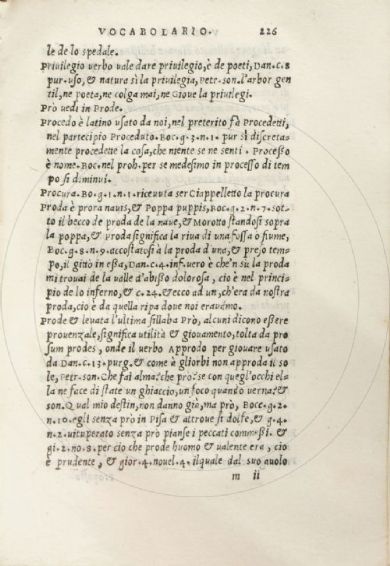 VOCABOLARIO. 226
le de lo spedale.
Priuilegio uerbo uale dare priuilegio, è de poeti, Dan.c.8
pur.uso, & natura sì la priuilegia, Petr.son.l'arbor gen
til, ne poeta, ne colga mai, ne Gioue la priuilegi.
Prò uedi in Prode.
Procedo è latino usato da noi, nel preterito fà Procedetti,
nel participio Proceduto. Boc.g.3.n.1. pur sì discreta-
mente procedette la cosa, che niente se ne sentì. Processo
è nome. Boc. nel proh. per se medesimo in processo di tem
po si diminuì.
Procura. Bo.g.1.n.1.riceuuta ser Ciappelletto la procura
Proda è prora nauis, & Poppa puppis, Boc.g.2.n.7.sot-
to il becco de proda de la naue, & Morotto standosi sopra
la poppa, & Proda significa la riua di una fossa o fiume,
Boc.g.8.n.9.accostatosi à la proda d'una, & preso tem-
po, il gittò in essa, Dan.c.4.inf.uero è che'n su la proda
mi trouai de la ualle d'abisso dolorosa, cio è nel princi-
pio de lo inferno, & c.24.& ecco ad un, ch'era da nostra
proda, cio è da quella ripa doue noi erauamo.
Prode & leuata l'ultima sillaba Prò, alcuni dicono essere
prouenzale, significa utilità & giouamento, tolta da pro
sum prodes, onde il uerbo Approdo per giouare usato
da Dan.c.13.purg.& come à gliorbi non approda il so
le, Petr.son.Che fai alma? che pro? se con quegl'occhi ella
la ne face di state un ghiaccio, un foco quando uerna? &
son.Qual mio destin, non danno già, ma prò, Boc.g.2.
n.10.egli senza prò in Pisa & altroue si dolse, & g.4.
n.2.uituperato senza prò pianse i peccati commessi. &
gi.2.no.8.per cio che prode huomo & ualente era, cio
è prudente, & gior.4.nouel.4.ilquale dal suo auolo
m ii